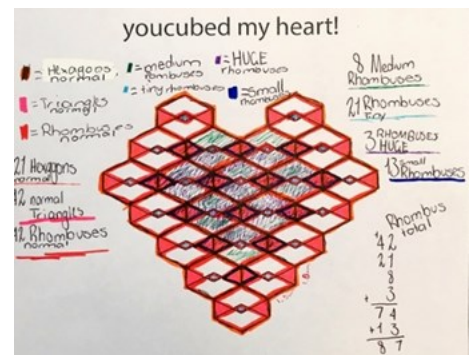 youcubed my heart!
= Hexagons
normal
= medium
rombuses
= HUGE
rhombuses
= Triangls
normal
= tiny rhombuses
= Small
= Rhombuses
normal
8 Medium
Rhombuses
21 Rhombuses
tiny
3 RHOMBUSES
HUGE
13 small
Rhombuses
21 Hexagons
normal
12 normal
Triangls
42 Rhombuses
normal
Rhombus
total
42
21
8
+ 3
74
+13
87